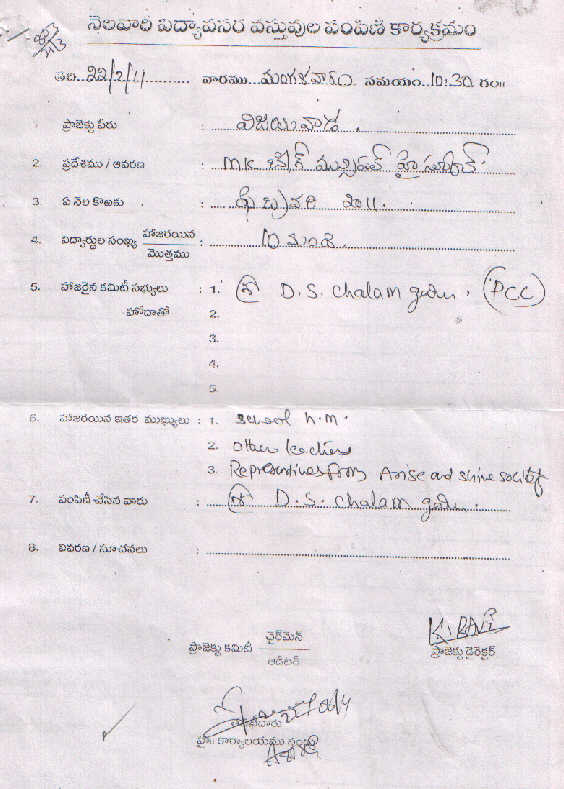 నెలవారి విద్యావసర వస్తువుల పంపిణి కార్యక్రమం
తేది. 22/2/11 వారము మంగళవారం సమయం. 10:30 గం॥
1. ప్రాజెక్టు పేరు : విజయవాడ.
2. ప్రదేశము / ఆవరణ : MK బేగ్ మున్సిపల్ హైస్కూల్
3. ఏ నెల కొఱకు : ఫిబ్రవరి 2011.
4. విద్యార్ధుల సంఖ్య హాజరయిన / మొత్తము : 10 మంది.
5. హాజరైన కమిటీ సభ్యులు : 1. శ్రీ D.S. Chalam గారు. (PCC)
హోదాతో 2.
3.
4.
5.
6. హాజరయిన ఇతర ముఖ్యులు : 1. School H.M.
2. Other teachers
3. Representives from Arise and shine society
7. పంపిణీ చేసిన వారు : శ్రీ D.S. Chalam గారు.
8. వివరణ / సూచనలు :
ప్రాజెక్టు కమిటీ ఛైర్‌మెన్ / ఆడిటర్
K. RAVI
ప్రాజెక్టు డైరెక్టర్
కార్యాలయము